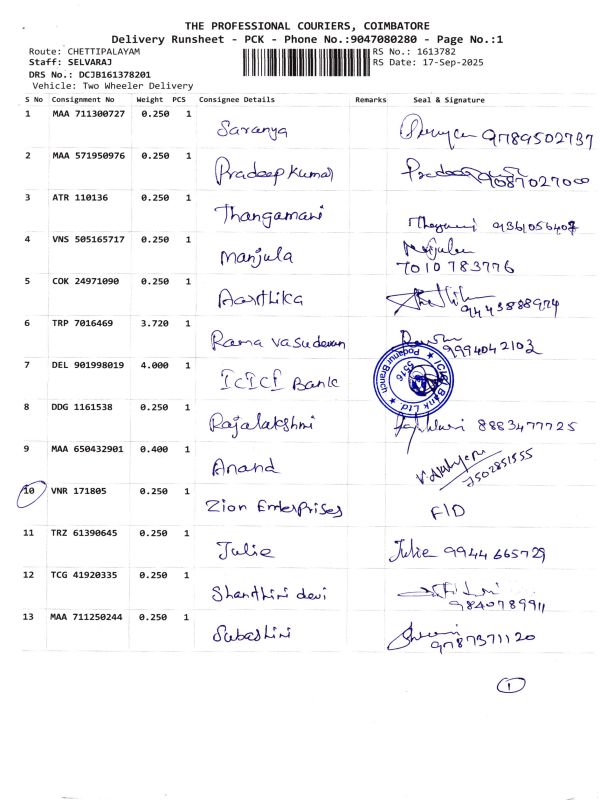 THE PROFESSIONAL COURIERS, COIMBATORE
Delivery Runsheet - PCK - Phone No.:9047080280 - Page No.:1
Route: CHETTIPALAYAM RS No.: 1613782
Staff: SELVARAJ RS Date: 17-Sep-2025
DRS No.: DCJB161378201
Vehicle: Two Wheeler Delivery
S No Consignment No Weight PCS Consignee Details Remarks Seal & Signature
1 MAA 711300727 0.250 1 Saranya 9789502737
2 MAA 571950976 0.250 1 Pradeep Kumar 9087027000
3 ATR 110136 0.250 1 Thangamani 9361056407
4 VNS 505165717 0.250 1 Manjula
7010 783776
5 COK 24971090 0.250 1 Aarthika 9443888974
6 TRP 7016469 3.720 1 Rama Vasudevan 9994042103
7 DEL 901998019 4.000 1 ICICI Bank ICICI Bank Ltd Podanur Branch 5516
8 DDG 1161538 0.250 1 Rajalakshmi 8883477725
9 MAA 650432901 0.400 1 Anand 7502851555
10 VNR 171805 0.250 1 Zion Enterprises F/D
11 TRZ 61390645 0.250 1 Julie Julie 9944665729
12 TCG 41920335 0.250 1 Shanthini devi 9840789911
13 MAA 711250244 0.250 1 Subashini 9787371120
1